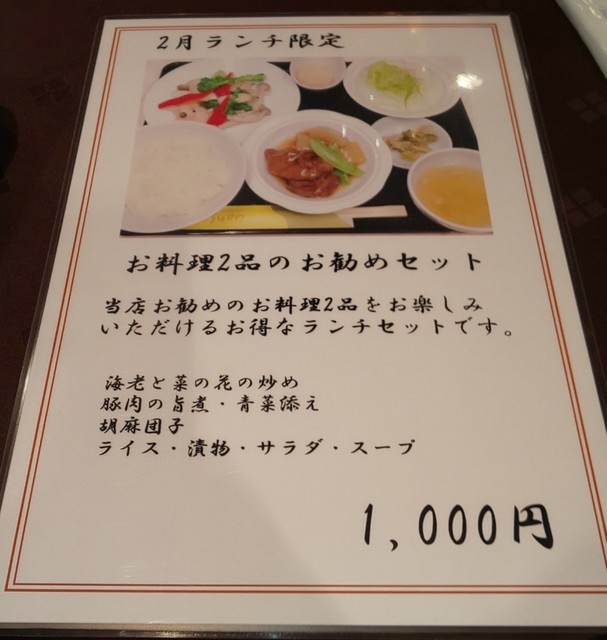 2月ランチ限定
お料理2品のお勧めセット
当店お勧めのお料理2品をお楽しみ
いただけるお得なランチセットです。
海老と菜の花の炒め
豚肉の旨煮・青菜添え
胡麻団子
ライス・漬物・サラダ・スープ
1,000円